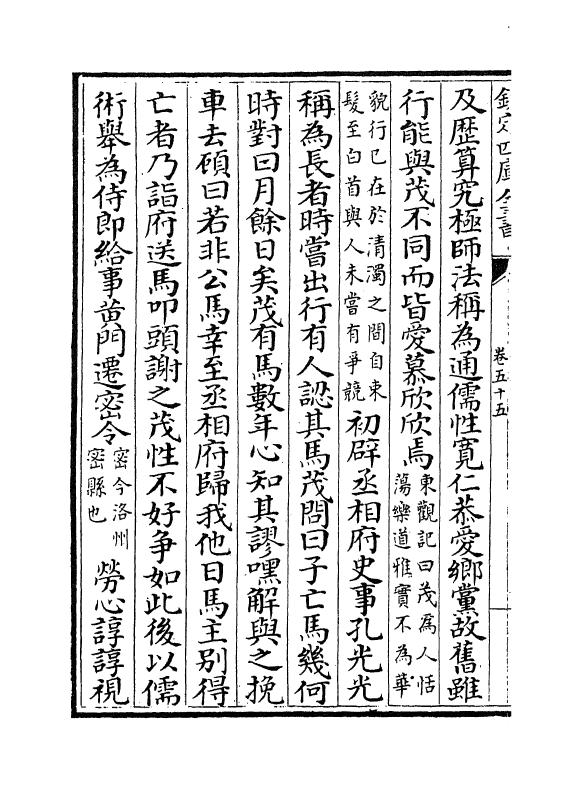 欽定四庫全書
卷五十五
及歴算究極師法稱為通儒性寛仁恭愛鄉黨故舊雖
行能與茂不同而皆愛慕欣欣焉東觀記曰茂為人恬蕩樂道雅實不為華
貌行已在於清濁之間自束髮至白首與人未嘗有爭競初辟丞相府史事孔光光
稱為長者時嘗出行有人認其馬茂問曰子亡馬幾何
時對曰月餘日矣茂有馬數年心知其謬嘿解與之挽
車去顧曰若非公馬幸至丞相府歸我他日馬主别得
亡者乃詣府送馬叩頭謝之茂性不好争如此後以儒
術舉為侍郎給事黄門遷密令密今洛州密縣也勞心諄諄視